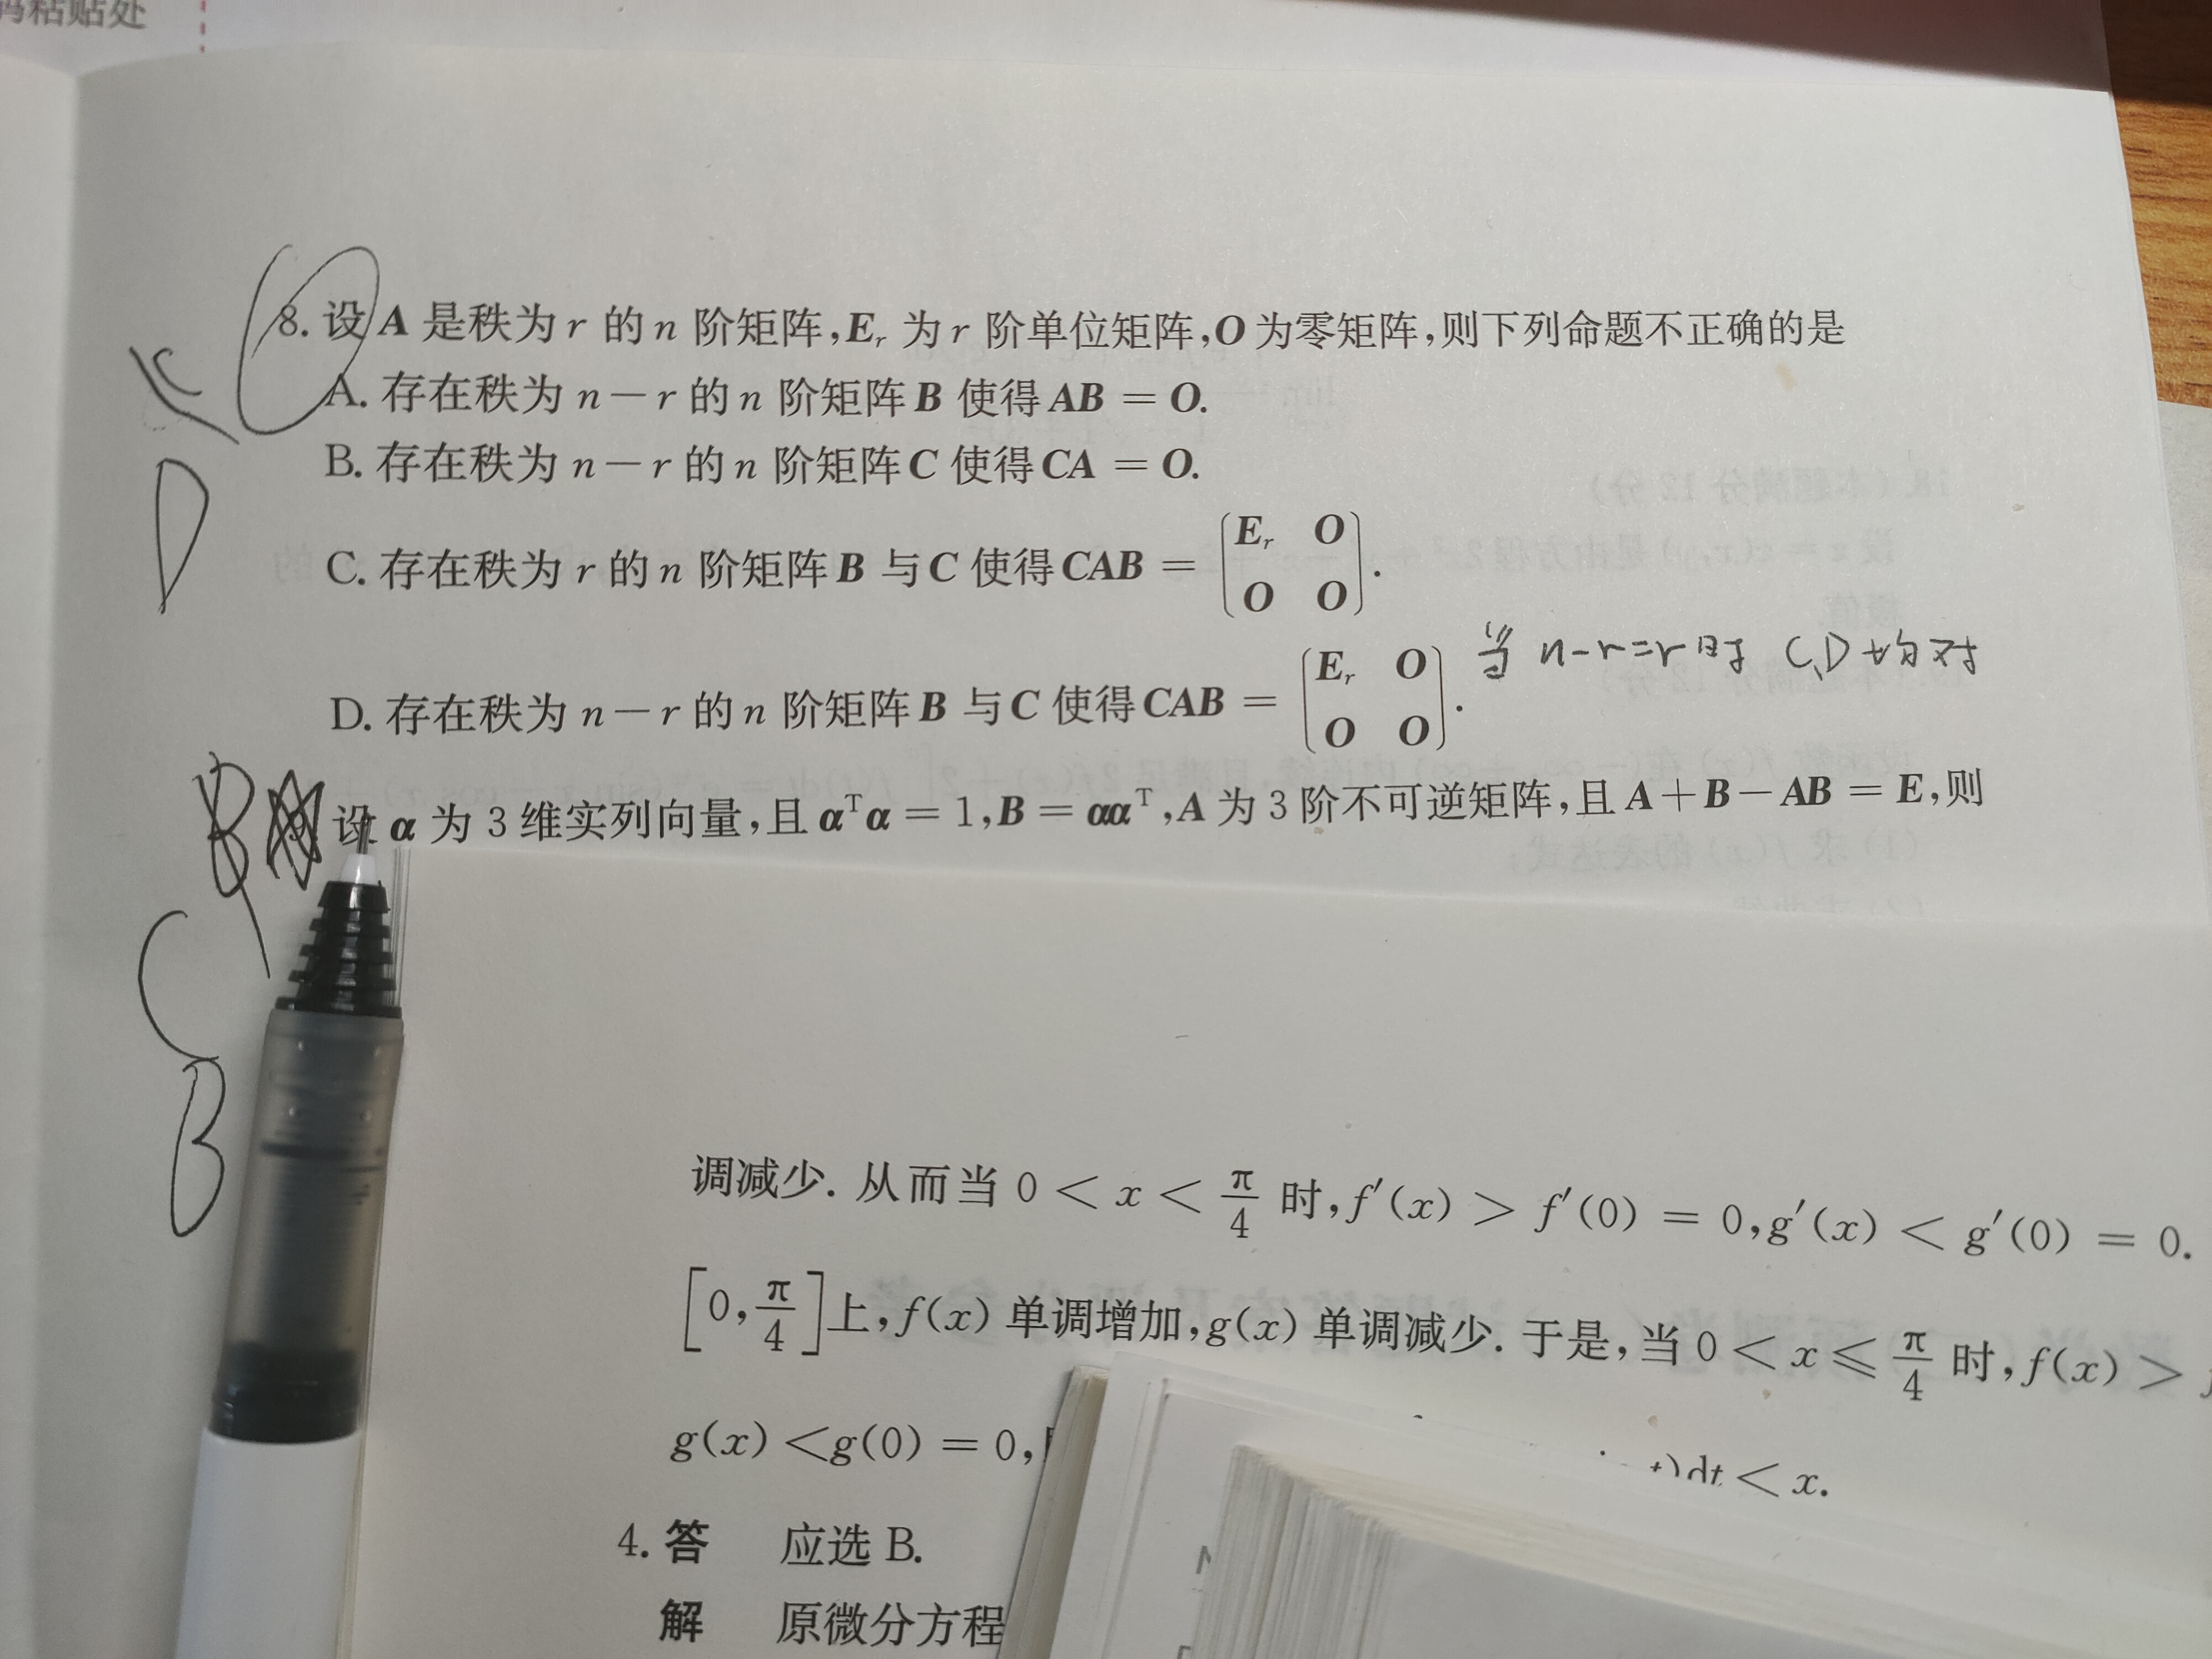 码粘贴处
8. 设 A 是秩为 r 的 n 阶矩阵,Eᵣ 为 r 阶单位矩阵,O 为零矩阵,则下列命题不正确的是
A. 存在秩为 n－r 的 n 阶矩阵 B 使得 AB = O.
B. 存在秩为 n－r 的 n 阶矩阵 C 使得 CA = O.
D
C. 存在秩为 r 的 n 阶矩阵 B 与 C 使得 CAB = (Eᵣ O
O O).
D. 存在秩为 n－r 的 n 阶矩阵 B 与 C 使得 CAB = (Eᵣ O
O O). 当 n-r=r 时 C,D 均对
设 α 为 3 维实列向量,且 αᵀα = 1,B = ααᵀ,A 为 3 阶不可逆矩阵,且 A＋B－AB = E,则
C
B
调减少. 从而当 0 < x < π/4 时,f′(x) > f′(0) = 0,g′(x) < g′(0) = 0.
[0,π/4]上,f(x) 单调增加,g(x) 单调减少. 于是,当 0 < x ⩽ π/4 时,f(x) >
g(x) <g(0) = 0,
t)dt < x.
4. 答 应选 B.
解 原微分方程